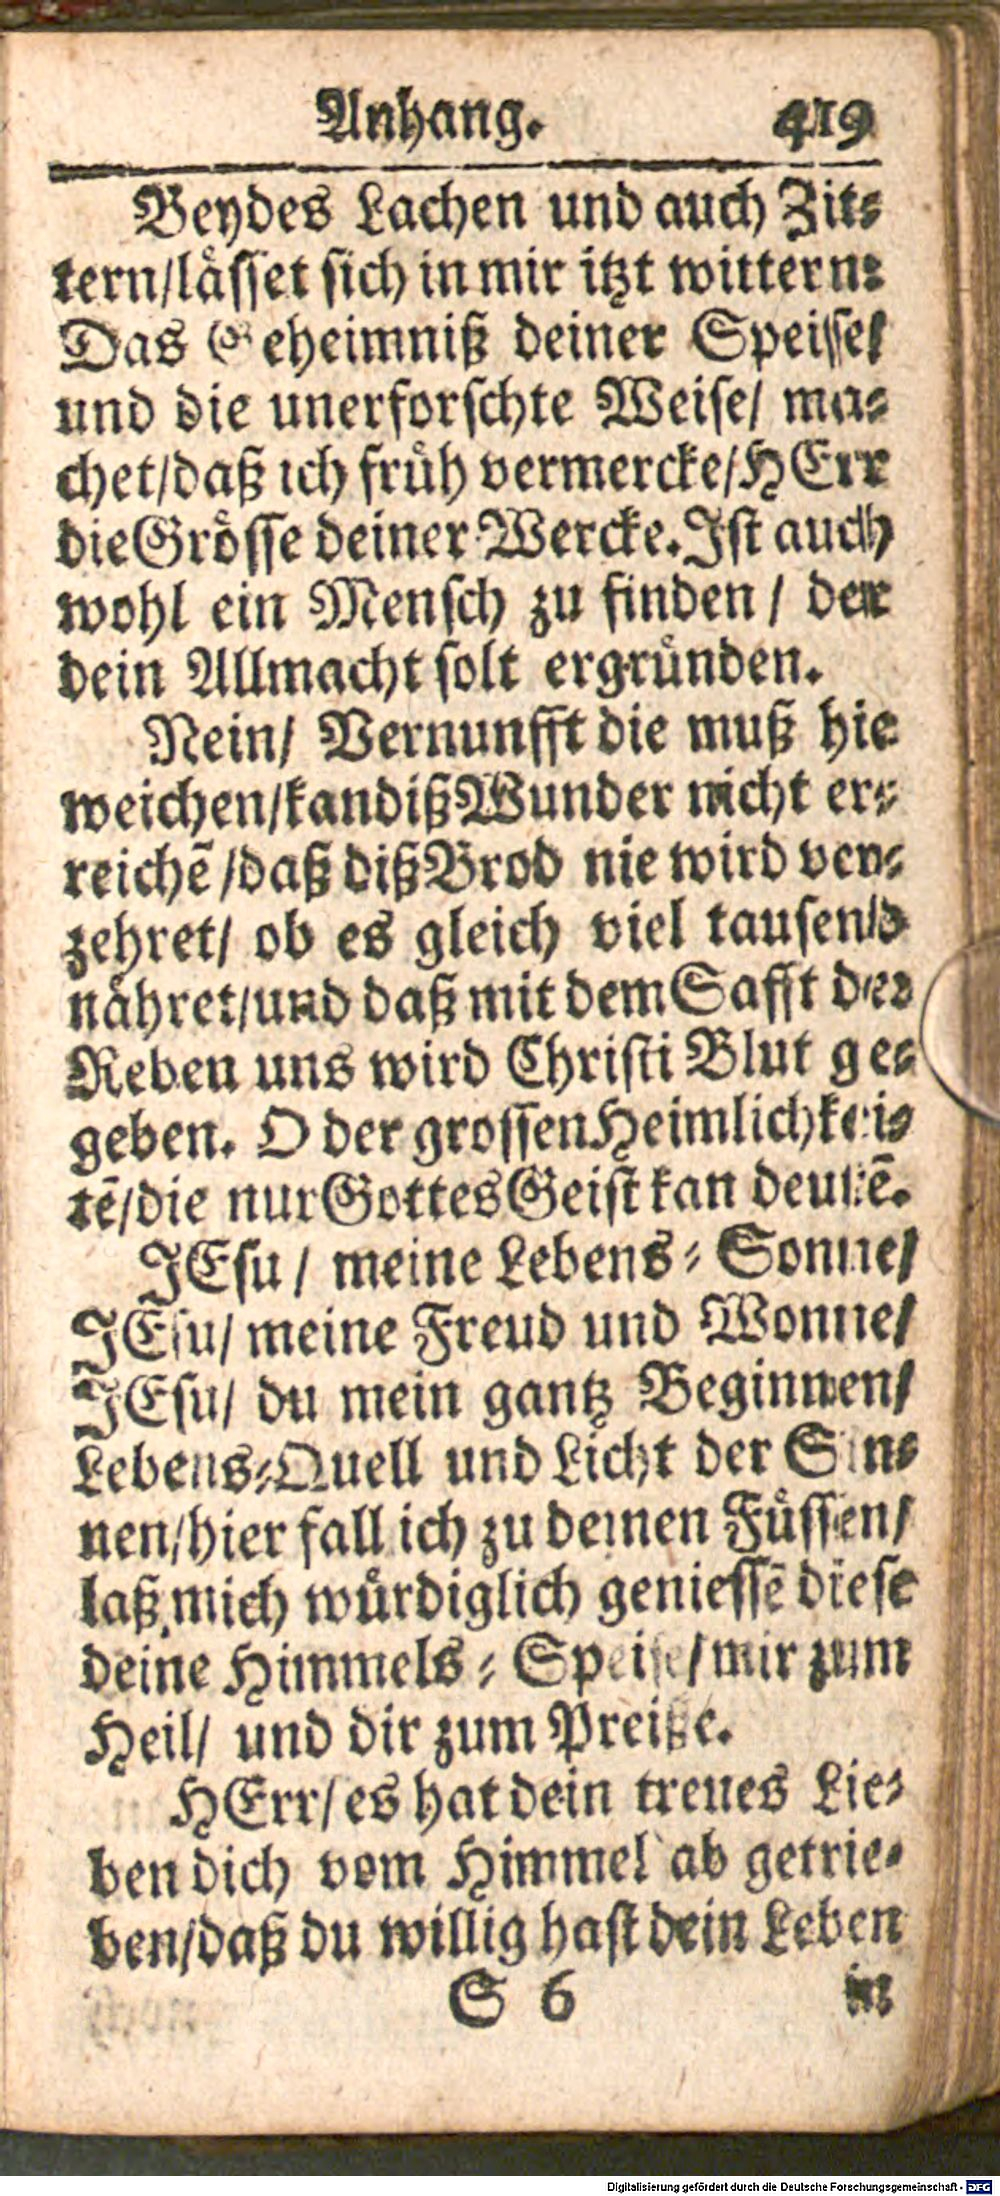 Anhang. 419
Beydes Lachen und auch Zit⸗
tern/låsset sich in mir itzt wittern:
Das Geheimniß deiner Speisse/
und die unerforschte Weise/ ma⸗
chet/daß ich früh vermercke/HErr
die Grösse deiner Wercke. Ist auch
wohl ein Mensch zu finden / der
dein Allmacht solt ergründen.
Nein/ Vernunfft die muß hie
weichen/kan diß Wunder nicht er⸗
reichē /daß diß Brod nie wird ver⸗
zehret/ ob es gleich viel tausend
nåhret/und daß mit dem Safft der
Reben uns wird Christi Blut ge⸗
geben. O der grossen Heimlichkei⸗
tē/die nur Gottes Geist kan deutē.
JEsu / meine Lebens⸗Sonne/
JEsu/ meine Freud und Wonne/
JEsu/ du mein gantz Beginnen/
Lebens⸗Quell und Licht der Sin⸗
nen/hier fall ich zu deinen Füssen/
laß mich würdiglich geniessē diese
deine Himmels⸗Speise/mir zum
Heil/ und dir zum Preiße.
HErr/es hat dein treues Lie⸗
ben dich vom Himmel ab getrie⸗
ben/daß du willig hast dein Leben
S 6 in
Digitalisierung gefördert durch die Deutsche Forschungsgemeinschaft - DFG